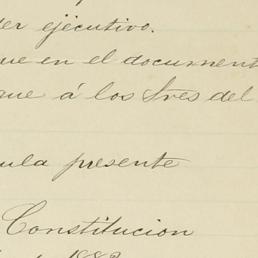 der ejecutivo.
que en el document
que á los tres del
ula presente
Constitucion
1883